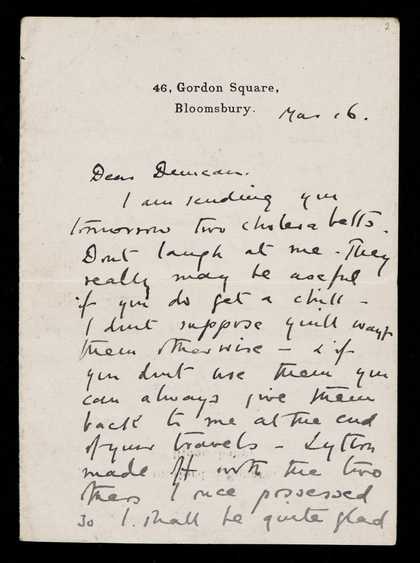 2
46, Gordon Square,
Bloomsbury.
Mar 16.
Dear Duncan.
I am sending you
tomorrow two cholera belts.
Dont laugh at me - They
really may be useful
if you do get a chill -
I dont suppose youll want
them otherwise - & if
you dont use them you
can always give them
back to me at the end
of your travels - Lytton
made off with the two
others I once possessed
so I shall be quite glad